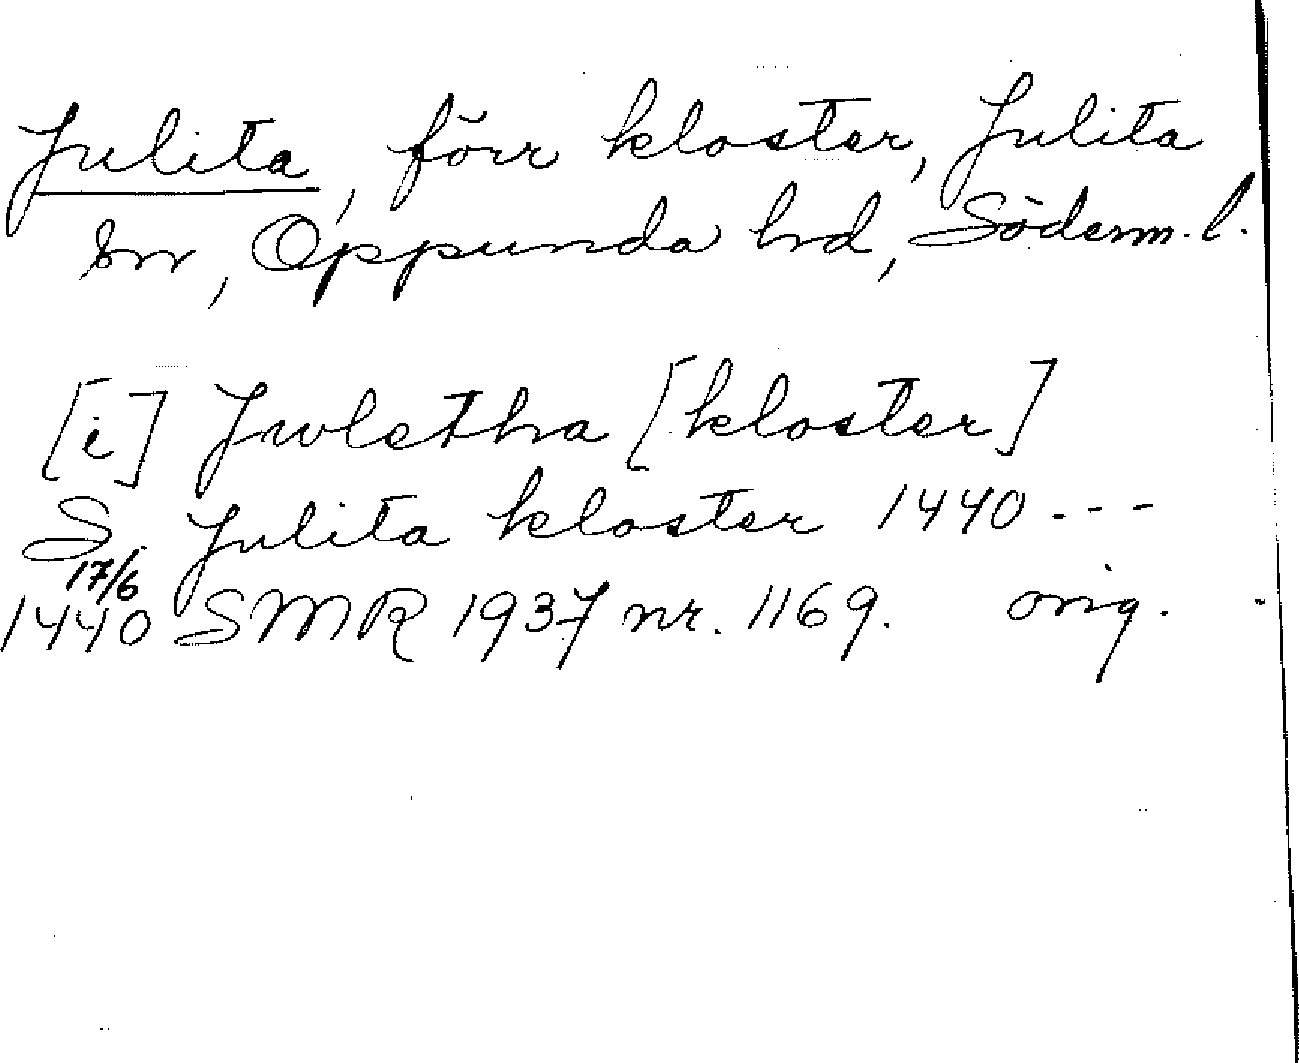 Julita, förr kloster, Julita
sn, Oppunda hd, Söderm. l.
[i] Juletha [kloster]
S. Julita kloster 1440 - - -
17/6
1440 SMR 1937 nr. 1169. orig.